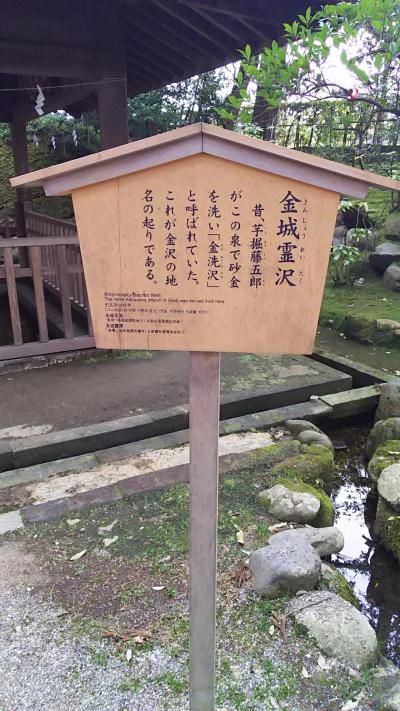 金城霊沢
きんじょうれいたく
昔、芋掘藤五郎
がこの泉で砂金
を洗い「金洗沢」
と呼ばれていた。
これが金沢の地
名の起りである。
Kinjoreitaku (Sacred Well)
The name Kanazawa (Marsh of Gold) was derived from here.